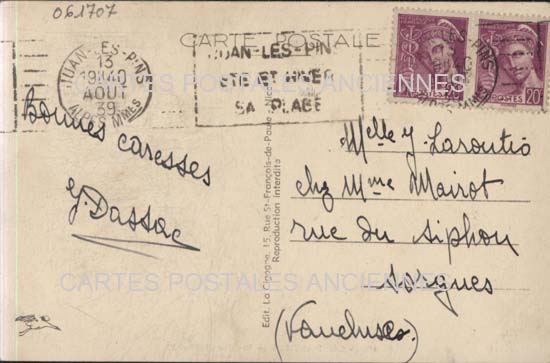 061707
CARTE POSTALE
JUAN-LES-PINS
13
19H40
AOUT
39
ALPES MMES
JUAN-LES-PINS
ÉTÉ ET HIVER
SA PLAGE
POSTES 20
Bonnes caresses
Y. Dassac
Edit. La Cigogne, 15, Rue St-François-de-Paule
Reproduction interdite
Melle Y Laroutio
chez Mme Mairot
rue du Siphon
Sorgues
(Vaucluse)
CARTES POSTALES ANCIENNES
CARTES POSTALES ANCIENNES